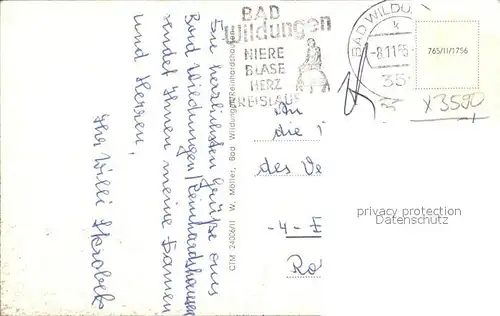 BAD
Wildungen
NIERE
BLASE
HERZ
KREISLAUF
BAD WILDU
k
-8.11.65
35
765/II/1756
X3580
Die herzlichsten Grüße aus
Bad Wildungen/Reinhardshausen
sendet Ihnen meine Damen
und Herren,
Ihr Willi
CTM 24006/II W. Möller, Bad Wildungen-Reinhardshausen
An
die
des Ve
-4-
Ro
privacy protection
Datenschutz